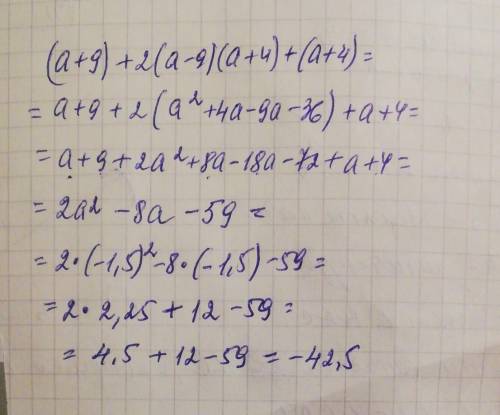 (a+9)+2(a-9)(a+4)+(a+4)=
= a+9+2(a²+4a-9a-36)+a+4=
= a+9+2a²+8a-18a-72+a+4=
= 2a² -8a -59 =
= 2·(-1,5)²-8·(-1,5)-59=
= 2·2,25+12-59=
= 4.5+12-59=-42,5